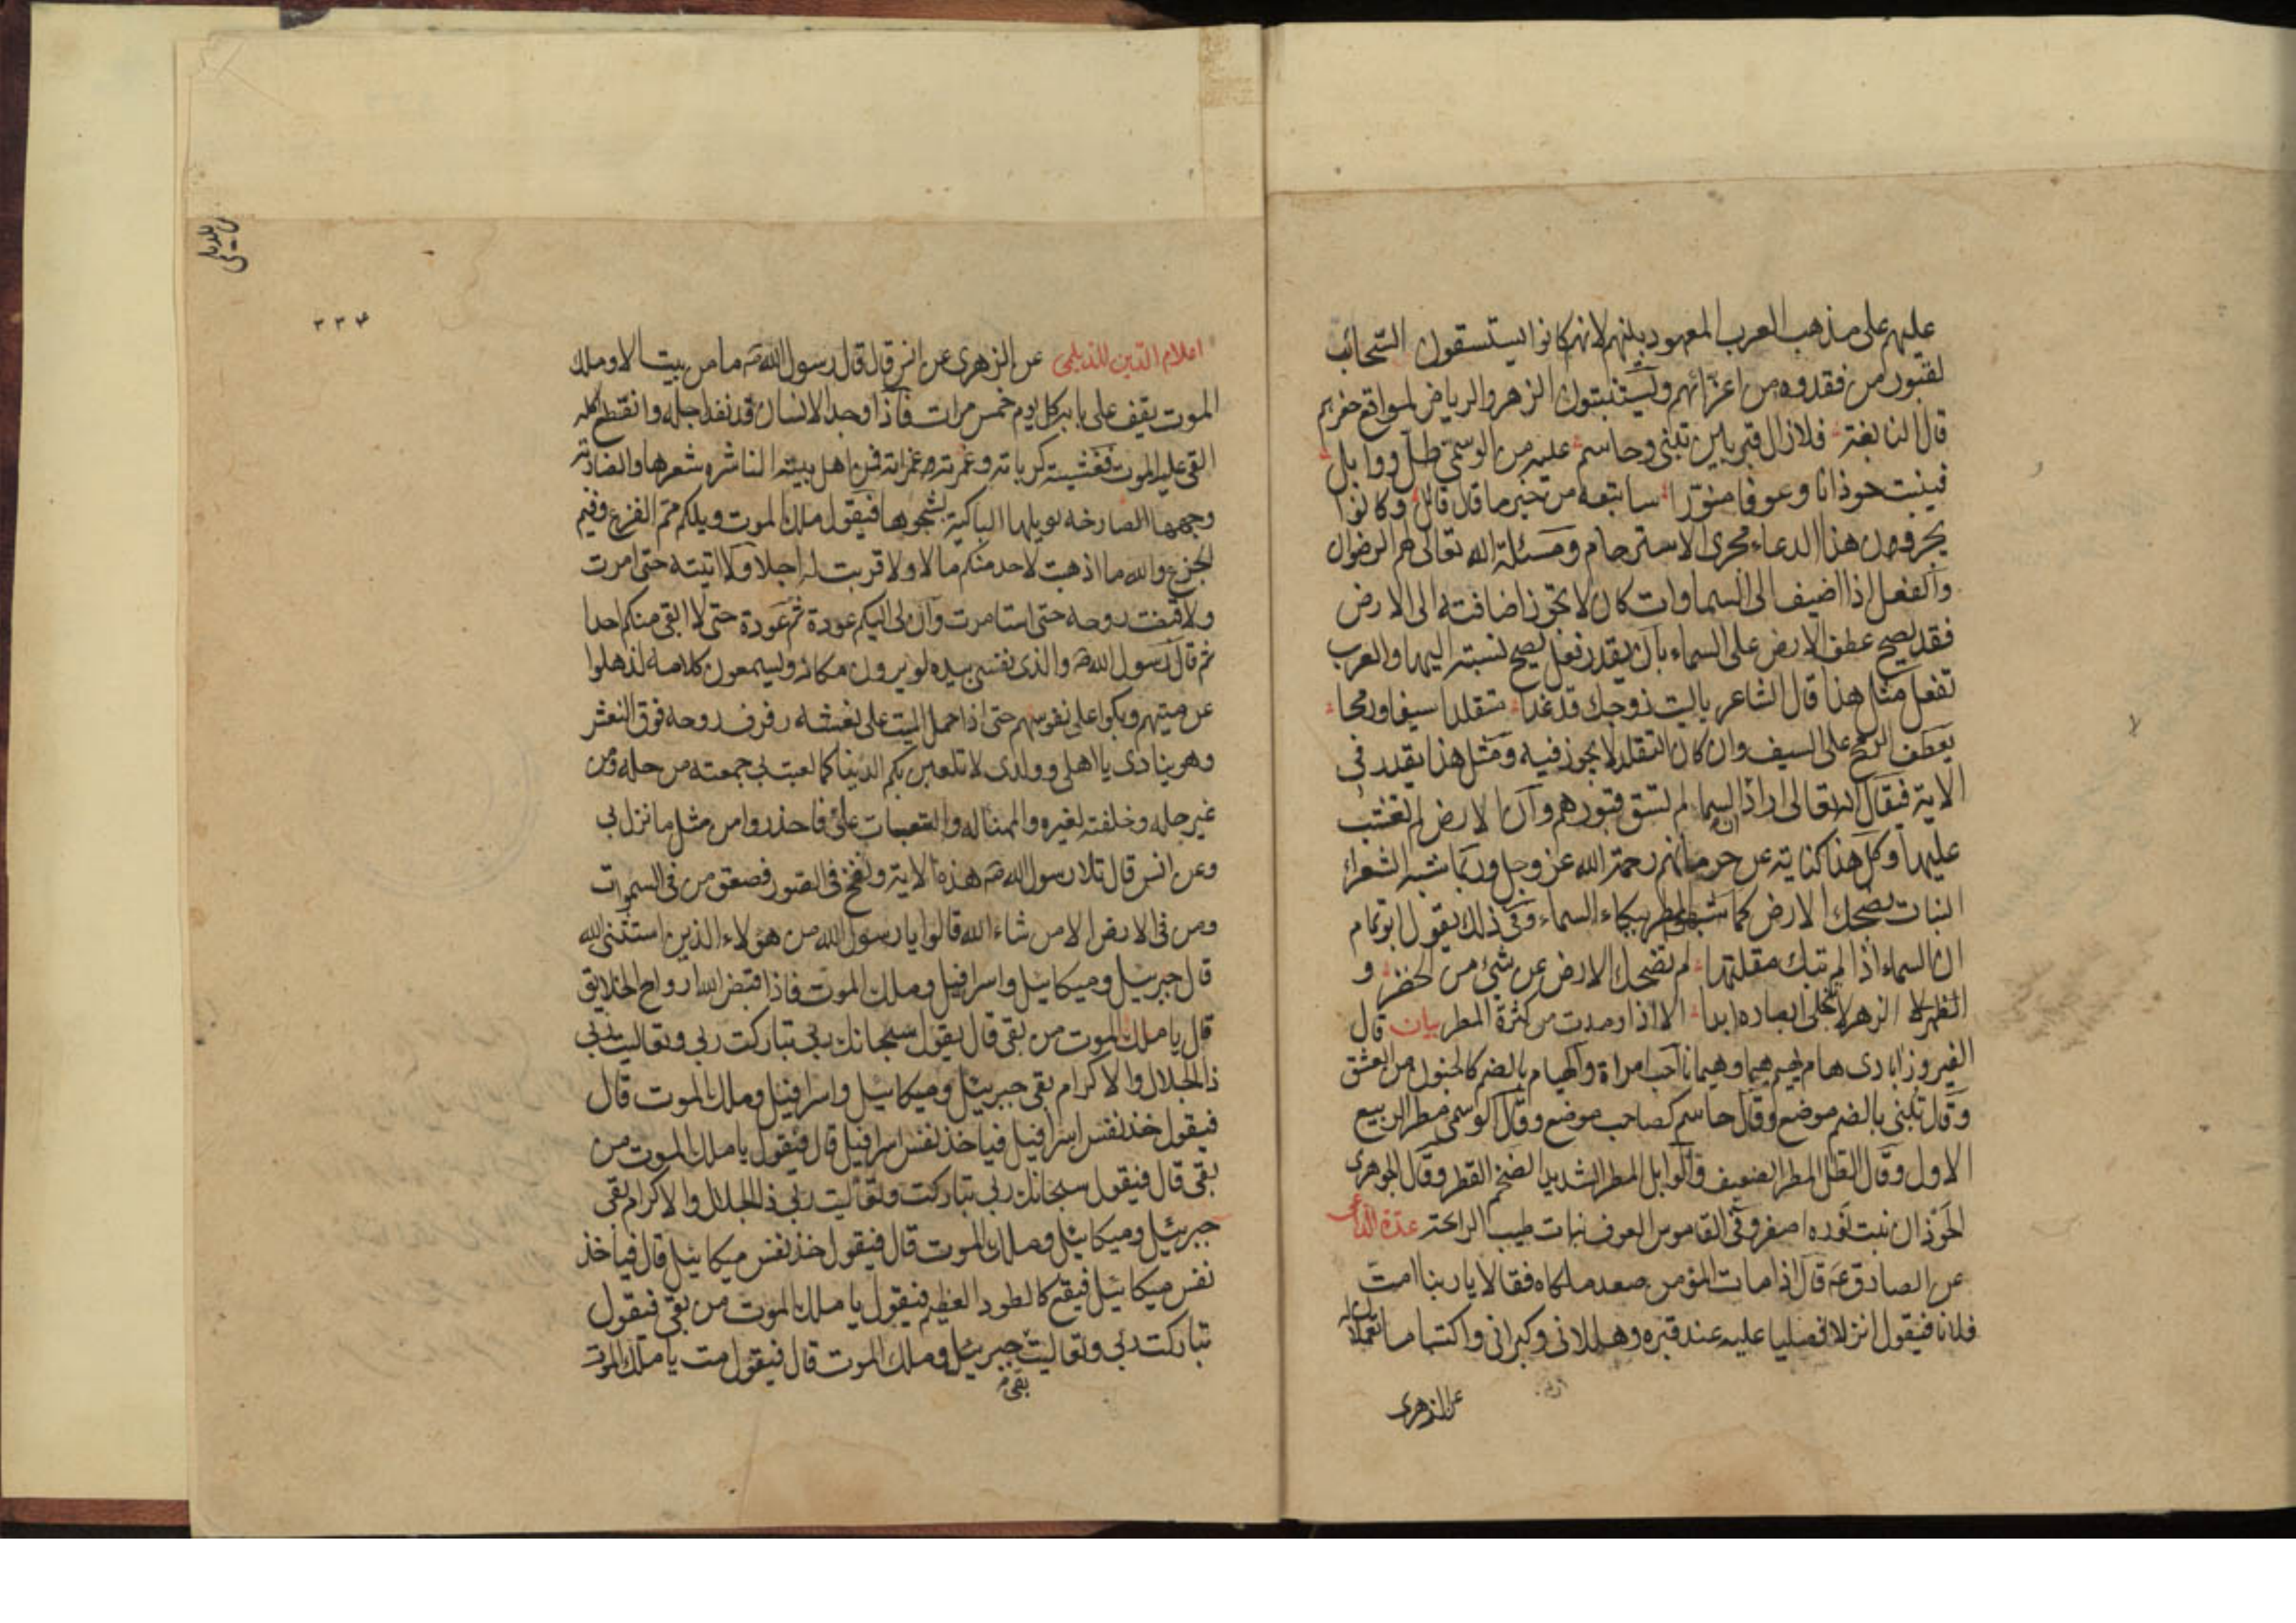 عليهم على مذهب العرب المعهود بينهم لانهم كانوا يستسقون السحائب
لقبور من فقدوه من اعزائهم ويستنبتون الزهر والرياض لمواقع حفرهم
قال النابغة فلا زال قبر بين تبنى وحاسم عليه من الوسمي طل ووابل
فينبت حوذانا وعوفا منورا ساتبعه من خير ما قال قائل وكانوا
يجرون هذا الدعاء مجرى الاسترحام ومسئلة الله تعالى لهم الرضوان
والفعل اذا اضيف الى السماوات كان لا تجوز اضافته الى الارض
فقد يصح عطف الارض على السماء بان يقدر فعل يصح نسبته اليها والعرب
تفعل مثل هذا قال الشاعر ياليت زوجك قد غدا متقلدا سيفا ورمحا
بعطف الرمح على السيف وان كان التقلد لا يجوز فيه ومثل هذا يقدر في
الاية فيقال انه تعالى اراد ان السماء لم تسق قبورهم وان الارض لم تعشب
عليها وكل هذا كناية عن حرمانهم رحمة الله عز وجل وربما شبه الشعراء
النبات بضحك الارض كما شبهوا المطر ببكاء السماء وفي ذلك يقول ابو تمام
ان السماء اذا لم تبك مقلتها لم تضحك الارض عن شئ من الخضر و
الزهر لا تنجلي ابصاره ابدا الا اذا رمدت من كثرة المطر بيان قال
الفيروزابادى هام يهيم هيما وهيمانا احب امراة والهيام بالضم كالجنون من العشق
وقال تبنى بالضم موضع وقال حاسم كصاحب موضع وقال الوسمي مطر الربيع
الاول وقال الطل المطر الضعيف والوابل المطر الشديد الضخم القطر وقال الجوهرى
الحوذان نبت نوره اصفر وفي القاموس العوف نبات طيب الرائحة عدة الداعى
عن الصادق ع قال اذا مات المؤمن صعد ملكاه فقالا يا ربنا امت
فلانا فيقول انزلا فصليا عليه عند قبره وهللاني وكبراني واكتبا ما تعملان له
عن الزهرى
٣٣٤
اعلام الدين للديلمي عن الزهرى عن انس قال قال رسول الله ص ما من بيت الا وملك
الموت يقف على بابه كل يوم خمس مرات فاذا وجد الانسان قد نفد اجله وانقطع اكله
القى عليه الموت فغشيته كرباته وغمرته غمراته فمن اهل بيته الناشرة شعرها والضاربة
وجهها الصارخة بويلها الباكية بشجوها فيقول ملك الموت ويلكم مم الفزع وفيم
الجزع والله ما اذهبت لاحد منكم مالا ولا قربت له اجلا ولا اتيته حتى امرت
ولا قبضت روحه حتى استامرت وان لى اليكم عودة ثم عودة حتى لا ابقى منكم احدا
ثم قال رسول الله ص والذى نفسى بيده لو يرون مكانه ويسمعون كلامه لذهلوا
عن ميتهم وبكوا على نفوسهم حتى اذا حمل الميت على نعشه رفرف روحه فوق النعش
وهو ينادى يا اهلى وولدى لا تلعبن بكم الدنيا كما لعبت بي جمعته من حله ومن
غير حله وخلفته لغيرى والمهنا له والتبعات على فاحذروا من مثل ما نزل بي
وعن انس قال تلا رسول الله ص هذه الاية ونفخ في الصور فصعق من في السموات
ومن في الارض الا من شاء الله قالوا يا رسول الله من هؤلاء الذين استثنى الله
قال جبرئيل وميكائيل واسرافيل وملك الموت فاذا قبض الله ارواح الخلايق
قال يا ملك الموت من بقى قال يقول سبحانك ربي تباركت ربي وتعاليت ربي
ذا الجلال والاكرام بقى جبرئيل وميكائيل واسرافيل وملك الموت قال
فيقول خذ نفس اسرافيل فياخذ نفس اسرافيل قال فيقول يا ملك الموت من
بقى قال فيقول سبحانك ربي تباركت وتعاليت ربي ذا الجلال والاكرام بقى
جبرئيل وميكائيل وملك الموت قال فيقول خذ نفس ميكائيل قال فياخذ
نفس ميكائيل فيقع كالطود العظيم فيقول يا ملك الموت من بقى فيقول
تباركت ربي وتعاليت بقى جبرئيل وملك الموت قال فيقول مت يا ملك الموت